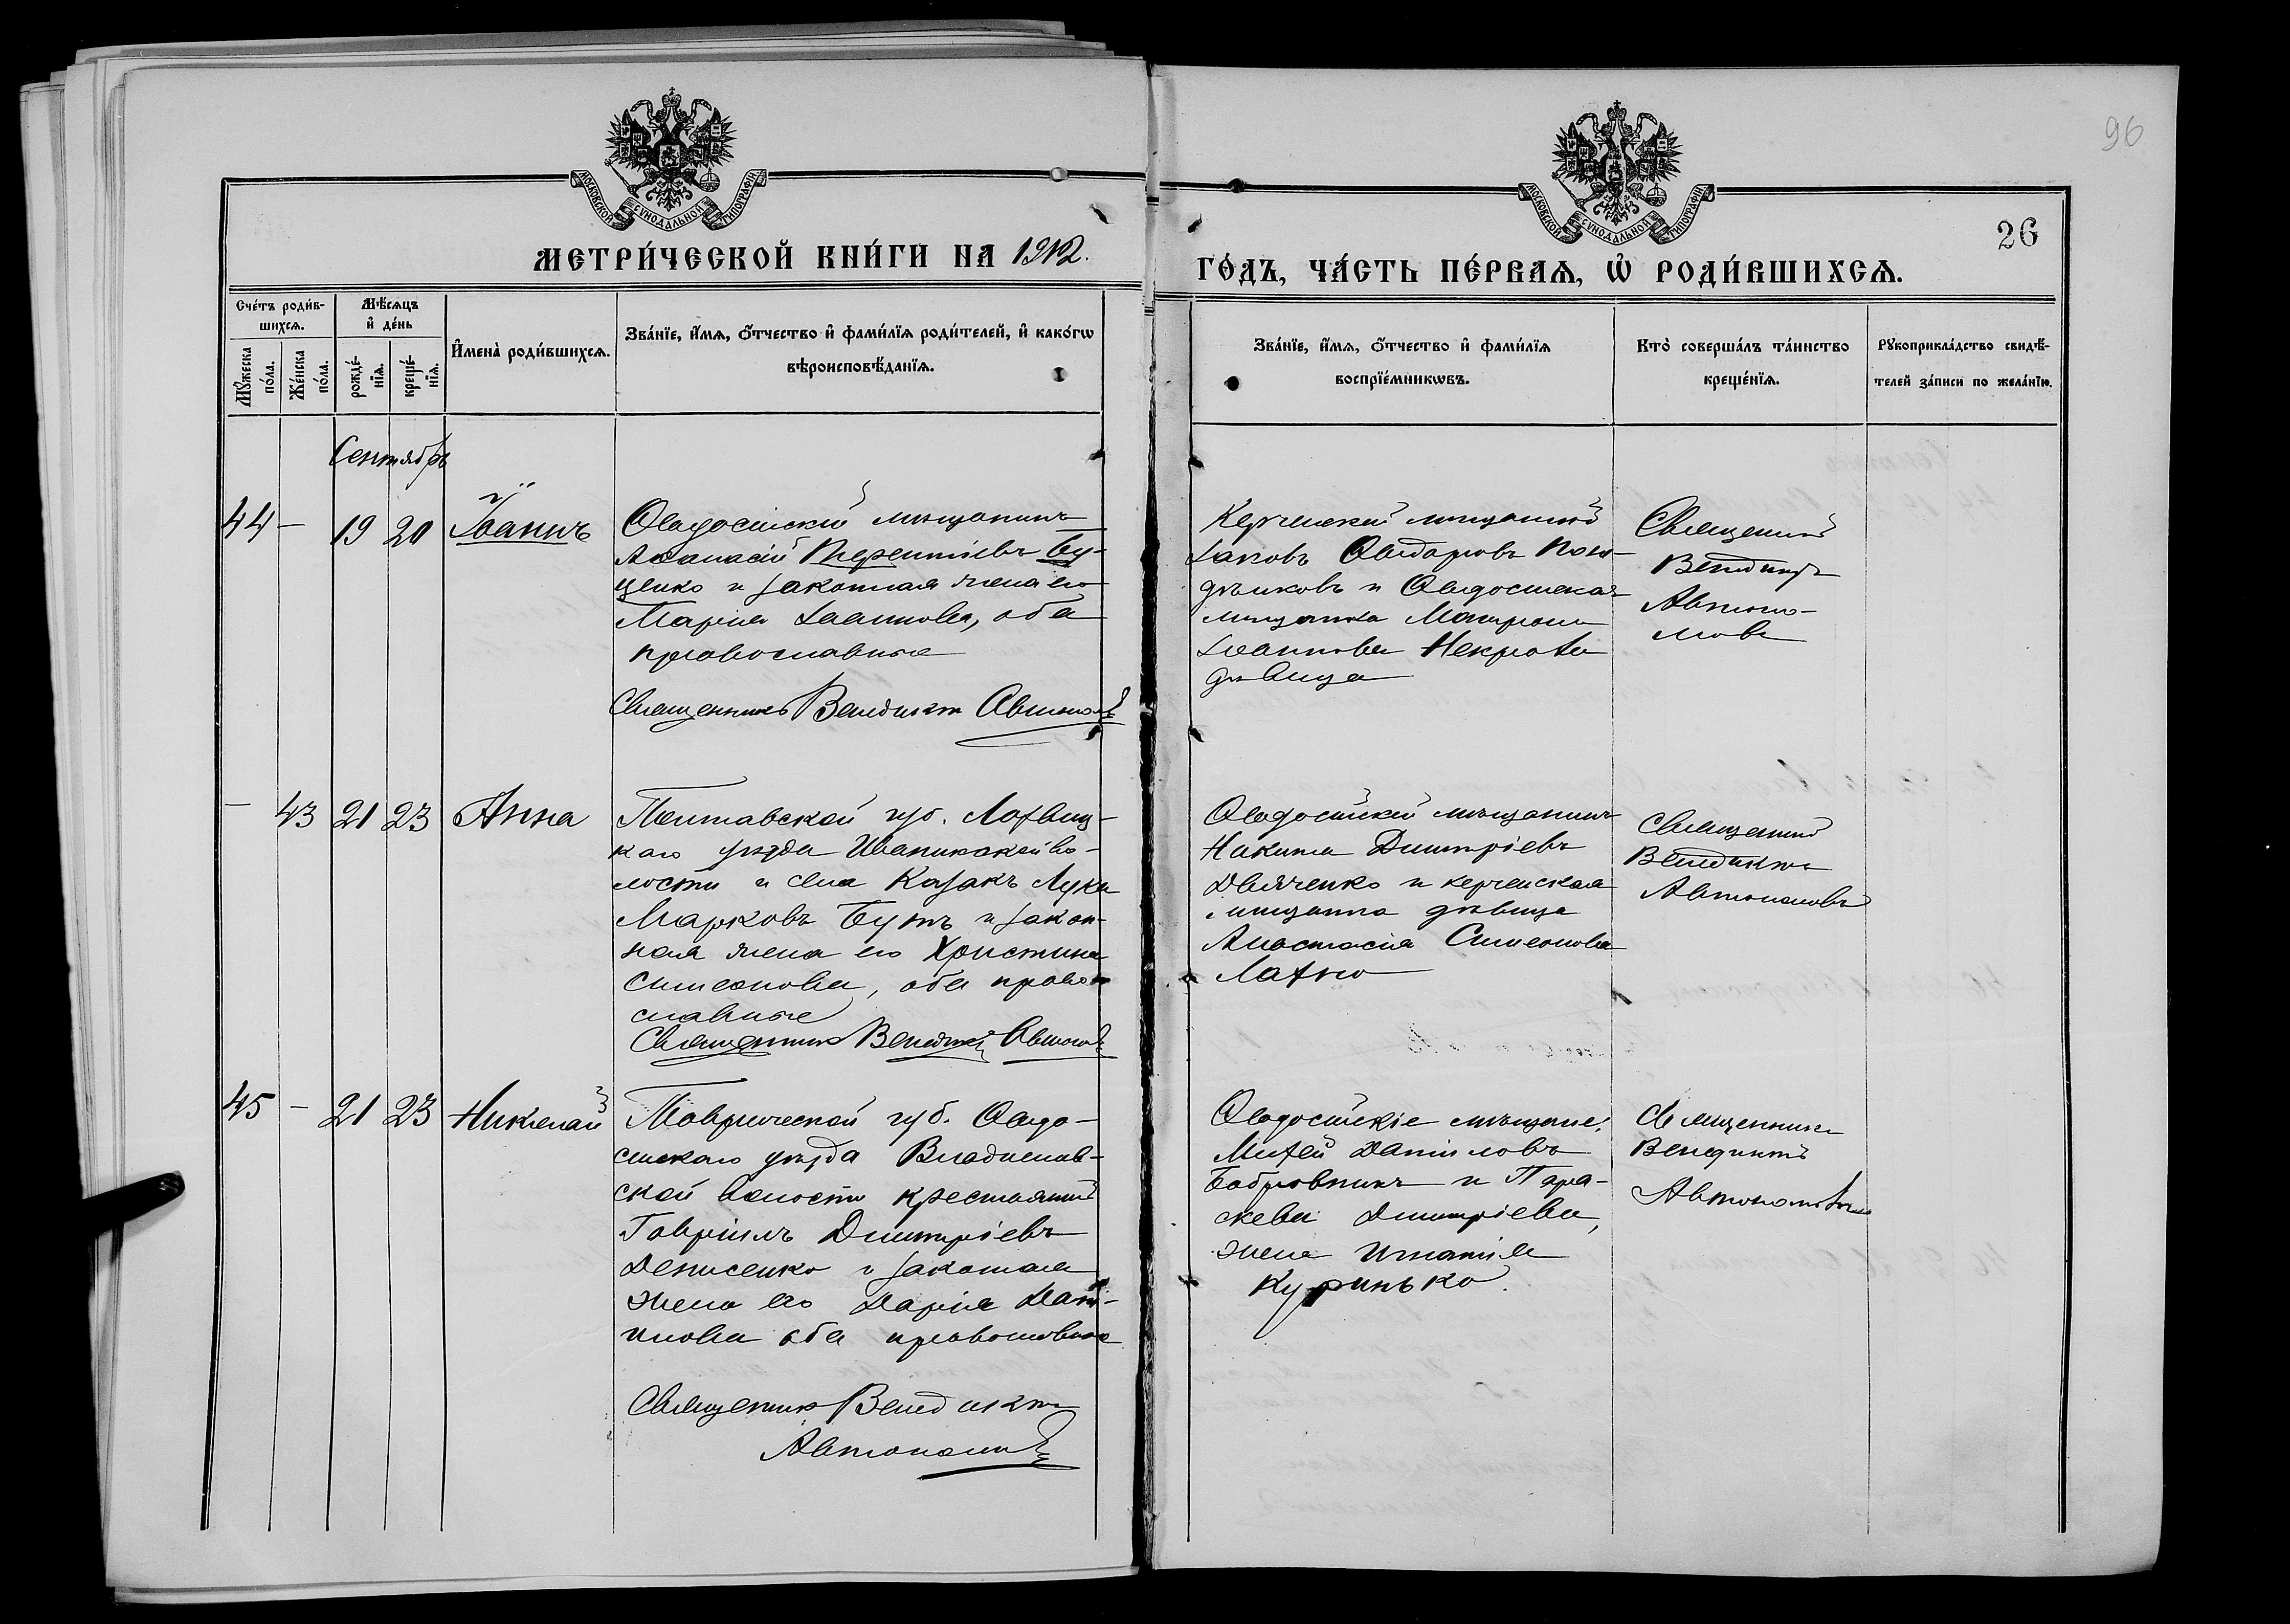 96
26
МОСКОВСКОЙ СѴНОДАЛЬНОЙ ТИПОГРАФІИ
МОСКОВСКОЙ СѴНОДАЛЬНОЙ ТИПОГРАФІИ
МЕТРИ́ЧЕСКОЙ КНИ́ГИ НА 1912.
ГО́ДЪ, ЧА́СТЬ ПЕ́РВАѦ, Ѡ҆ РОДИ́ВШИХСѦ.
Сче́тъ роди́в-
шихсѧ.
Мꙋ́жеска по́ла.
Же́нска по́ла.
Мѣ́сѧцъ
и҆ де́нь
рожде́-
нїѧ.
креще́-
нїѧ.
И҆мена̀ роди́вшихсѧ.
Зва́нїе, и҆́мѧ, ѻ҆́тчество и҆ фами́лїѧ роди́телей, и҆ како́гѡ
вѣроисповѣ́данїѧ.
Зва́нїе, и҆́мѧ, ѻ҆́тчество и҆ фами́лїѧ
воспрїе́мникѡвъ.
Кто̀ соверша́лъ та́инство
креще́нїѧ.
Рꙋкоприкла́дство свидѣ́-
телей за́писи по жела́нїю.
Сентябрь
44 — 19 20 Іоаннъ
Ѳеодосійскій мѣщанинъ
Аѳанасій Терентіевъ Бу-
ценко и законная жена его
Марія Іоаннова, оба
православные
Священникъ Венедиктъ Автономовъ
Керченскій мѣщанинъ
Іаковъ Ѳеодоровъ
и Ѳеодосійская
мѣщанка
Іоаннова
дѣвица
Священникъ
Венедиктъ
Автоно-
мовъ
— 43 21 23 Анна
Полтавской губ. Лохвиц-
каго уѣзда во-
лости и села Казакъ Лука
Марковъ Бутъ и закон-
ная жена его Христина
Симеонова, оба право-
славные
Священникъ Венедиктъ Автономовъ
Ѳеодосійскій мѣщанинъ
Никита Димитріевъ
и керченская
мѣщанка дѣвица
Анастасія Симеонова
Священникъ
Венедиктъ
Автономовъ
45 — 21 23 Николай
Таврической губ. Ѳеодо-
сійскаго уѣзда Владислав-
ской волости крестьянинъ
Гавріилъ Димитріевъ
Денисенко и законная
жена его Дарія Дані-
илова оба православные
Священникъ Венедиктъ
Автономовъ
Ѳеодосійскіе мѣщане:
Даніиловъ
Бобровникъ и Пара-
скева Димитріева,
жена Игнатія
Куринько.
Священникъ
Венедиктъ
Автономовъ